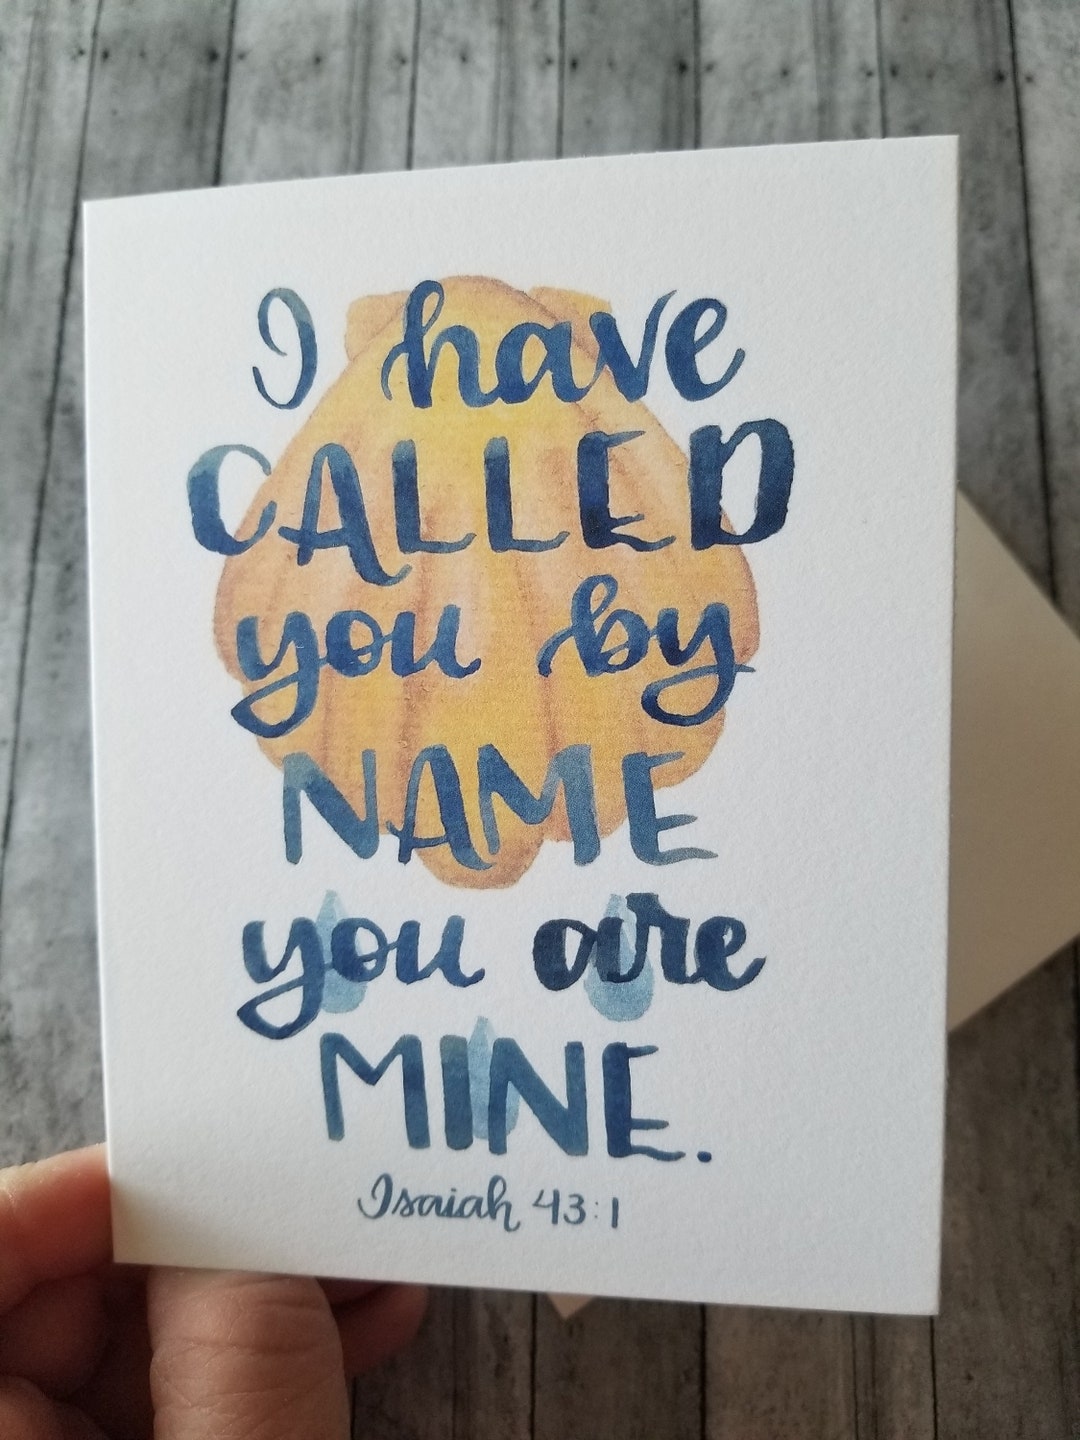 I have
CALLED
you by
NAME
you are
MINE.
Isaiah 43:1